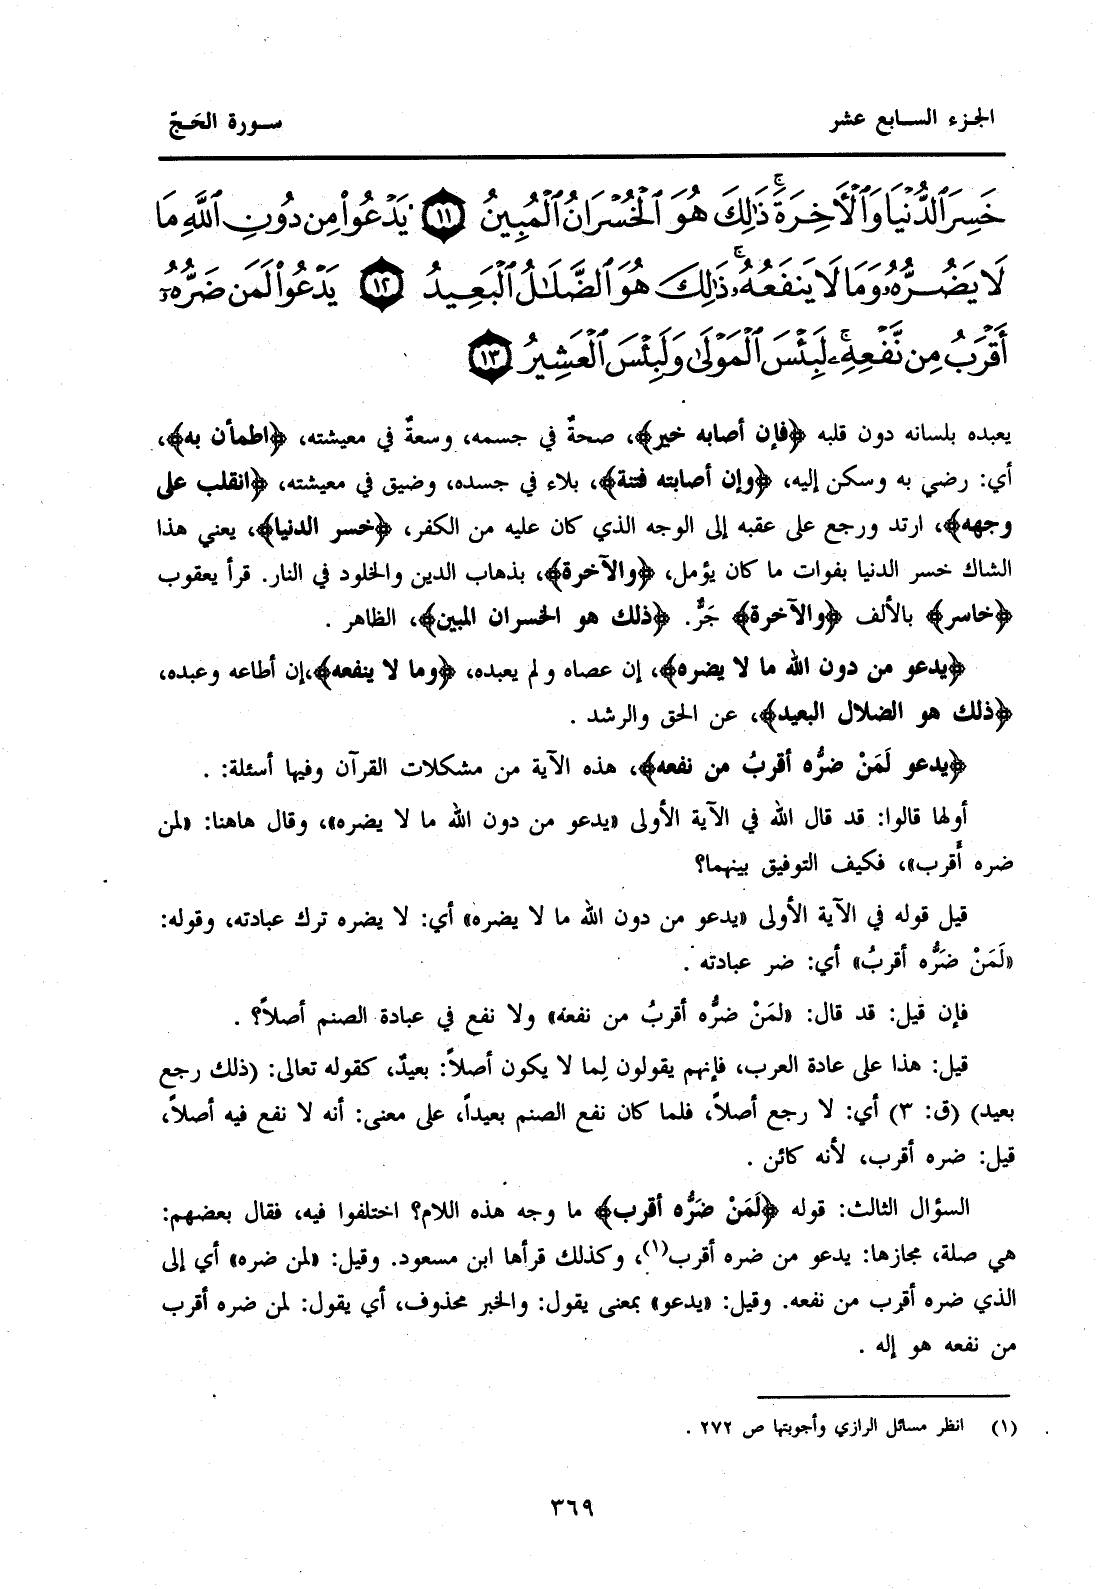 الجزء السابع عشر
سورة الحَجّ
خَسِرَ ٱلدُّنْيَا وَٱلْأَخِرَةَ ۚ ذَٰلِكَ هُوَ ٱلْخُسْرَانُ ٱلْمُبِينُ ١١ يَدْعُوا۟ مِن دُونِ ٱللَّهِ مَا
لَا يَضُرُّهُۥ وَمَا لَا يَنفَعُهُۥ ۚ ذَٰلِكَ هُوَ ٱلضَّلَٰلُ ٱلْبَعِيدُ ١٢ يَدْعُوا۟ لَمَن ضَرُّهُۥٓ
أَقْرَبُ مِن نَّفْعِهِۦ ۚ لَبِئْسَ ٱلْمَوْلَىٰ وَلَبِئْسَ ٱلْعَشِيرُ ١٣
يعبده بلسانه دون قلبه ﴿فإن أصابه خير﴾، صحةٌ في جسمه، وسعةٌ في معيشته، ﴿اطمأن به﴾،
أي: رضي به وسكن إليه، ﴿وإن أصابته فتنة﴾، بلاء في جسده، وضيق في معيشته، ﴿انقلب على
وجهه﴾، ارتد ورجع على عقبه إلى الوجه الذي كان عليه من الكفر، ﴿خسر الدنيا﴾، يعني هذا
الشاك خسر الدنيا بفوات ما كان يؤمل، ﴿والآخرة﴾، بذهاب الدين والخلود في النار. قرأ يعقوب
﴿خاسر﴾ بالألف ﴿والآخرة﴾ جَرٌّ. ﴿ذلك هو الخسران المبين﴾، الظاهر .
﴿يدعو من دون الله ما لا يضره﴾، إن عصاه ولم يعبده، ﴿وما لا ينفعه﴾،إن أطاعه وعبده،
﴿ذلك هو الضلال البعيد﴾، عن الحق والرشد .
﴿يدعو لَمَنْ ضرُّه أقربُ من نفعه﴾، هذه الآية من مشكلات القرآن وفيها أسئلة: .
أولها قالوا: قد قال الله في الآية الأولى «يدعو من دون الله ما لا يضره»، وقال هاهنا: «لمن
ضره أقرب»، فكيف التوفيق بينهما؟
قيل قوله في الآية الأولى «يدعو من دون الله ما لا يضره» أي: لا يضره ترك عبادته، وقوله:
«لَمَنْ ضَرُّه أقربُ» أي: ضر عبادته .
فإن قيل: قد قال: «لمَنْ ضرُّه أقربُ من نفعه» ولا نفع في عبادة الصنم أصلاً؟ .
قيل: هذا على عادة العرب، فإنهم يقولون لِما لا يكون أصلاً: بعيدٌ، كقوله تعالى: (ذلك رجع
بعيد) (ق: ٣) أي: لا رجع أصلاً، فلما كان نفع الصنم بعيداً، على معنى: أنه لا نفع فيه أصلاً،
قيل: ضره أقرب، لأنه كائن .
السؤال الثالث: قوله ﴿لَمَنْ ضَرُّه أقرب﴾ ما وجه هذه اللام؟ اختلفوا فيه، فقال بعضهم:
هي صلة، مجازها: يدعو من ضره أقرب(١)، وكذلك قرأها ابن مسعود. وقيل: «لمن ضره» أي إلى
الذي ضره أقرب من نفعه. وقيل: «يدعو» بمعنى يقول: والخبر محذوف، أي يقول: لمن ضره أقرب
من نفعه هو إله .
(١) انظر مسائل الرازي وأجوبتها ص ٢٧٢ .
٣٦٩